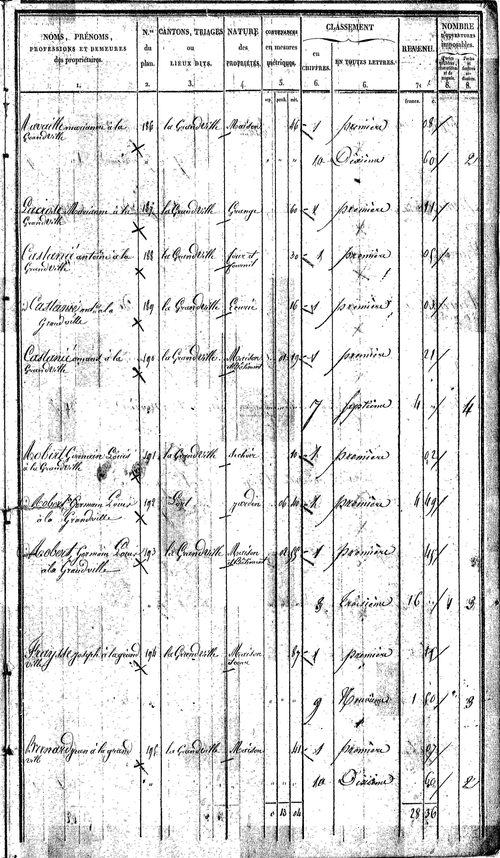 NOMS, PRÉNOMS,
PROFESSIONS ET DEMEURES
des propriétaires.
1.
N.os
du
plan.
2.
CANTONS, TRIAGES
ou
LIEUX DITS.
3.
NATURE
des
PROPRIÉTÉS.
4.
CONTENANCES
en mesures
métriques.
5.
CLASSEMENT
en
CHIFFRES.
6.
EN TOUTES LETTRES.
6.
REVENU.
7.
NOMBRE
D'OUVERTURES
imposables.
8.
8.
francs. c.
marianne à la 186 la Grandville Maison 46 1 première 08
Grandville
10 Dixième 60 2
Marianne à la 187 la Grandville Grange 60 1 première 11
Grandville
Castanié antoine à la 188 la Grandville four et 30 1 première 05
Grandville fournil
Castanié à la 189 la Grandville 16 1 première 03
Grandville
Castanié amant à la 190 la Grandville Maison 01 19 1 première 21
Grandville et Bâtiment
7 septième 4 4
Mobert Germain Louis 191 la Grandville 10 1 première 02
à la Grandville
Mobert Germain Louis 192 jardin 06 première 4 49
à la Grandville
Mobert Germain Louis 193 la Grandville Maison 1 première 45
à la Grandville et Bâtiment
3 troisième 16 3
Joseph à la grand 194 la Grandville Maison 87 1 première
ville
9 Neuvième 1 60 3
Bernard jean à la grand 195 la Grandville Maison 41 1 première 07
ville
10 Dixième 60 2
0 13 04 28 36